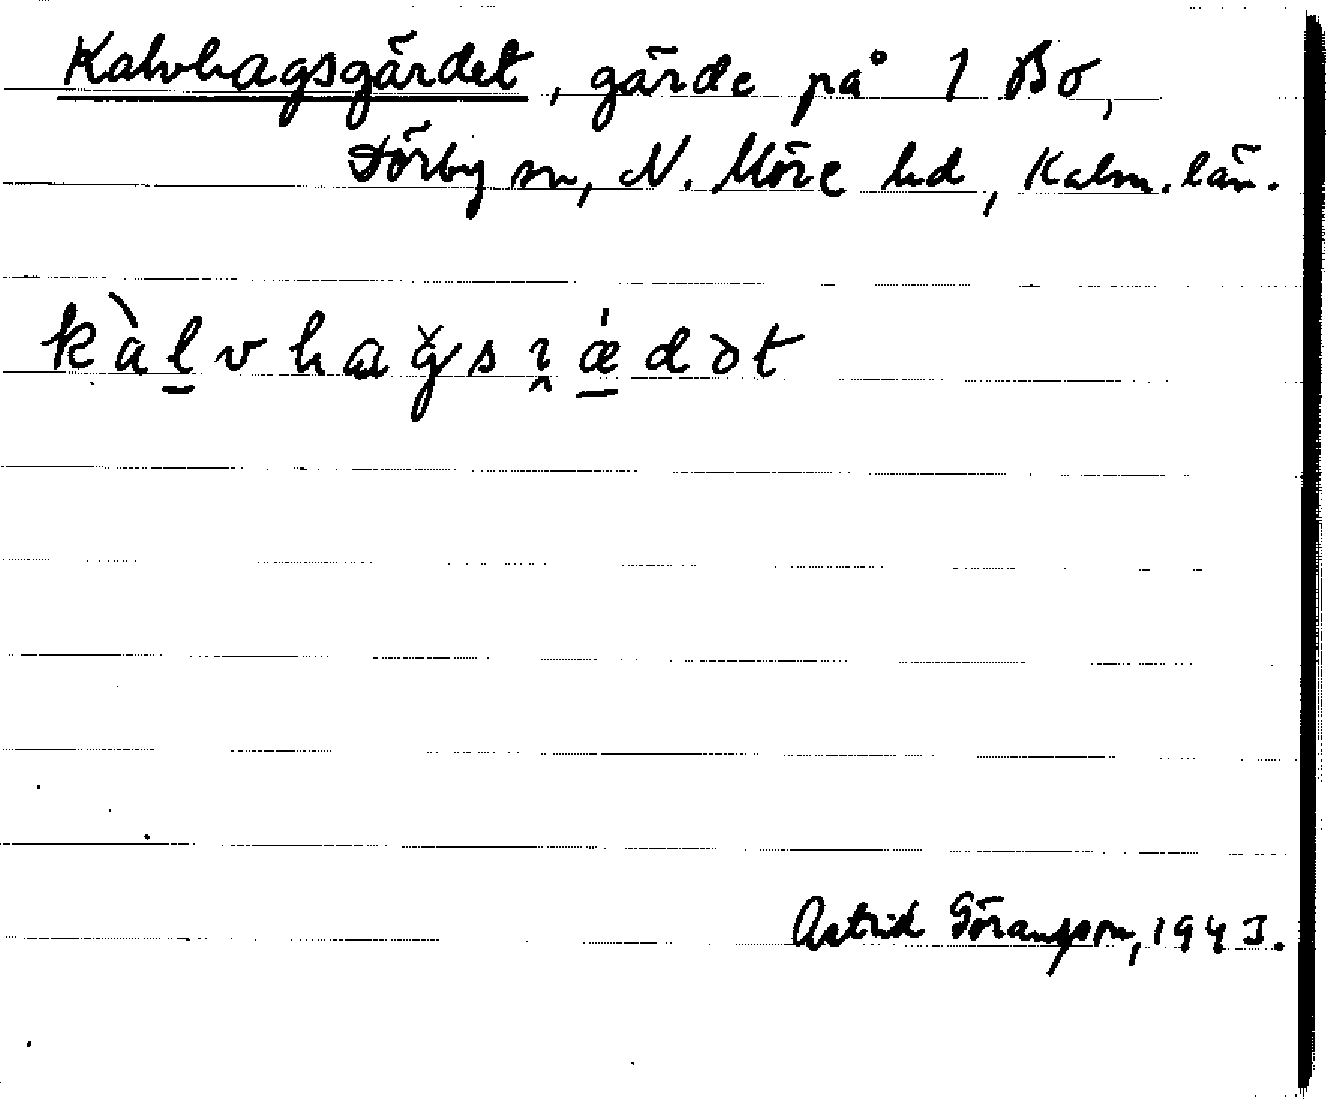 Kalvhagsgärdet, gärde på 1 Bo,
Förby sn, N. Möre hd, Kalm. län.
kàḻvhaǧsı̭ǽ̱dət
Astrid Göransson, 1943.